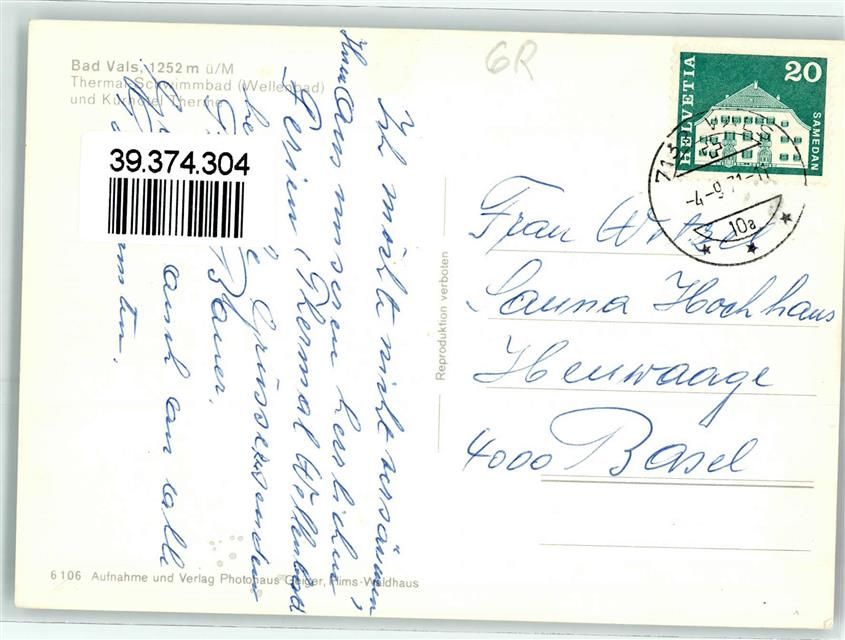 Bad Vals, 1252 m ü/M
Thermal-Schwimmbad (Wellenbad)
und Kurhotel Therme
6R
HELVETIA
20
SAMEDAN
713
-4-9.71-11
10a
39.374.304
Ich möchte nicht versäumen,
Ihnen aus unseren herrlichen
Ferien, Thermal Wellenbad
Grüsse zu senden
Bauer.
auch an alle
Reproduktion verboten
Frau
Sauna Hochhaus
Heuwaage
4000 Basel
6106 Aufnahme und Verlag Photohaus Geiger, Flims-Waldhaus